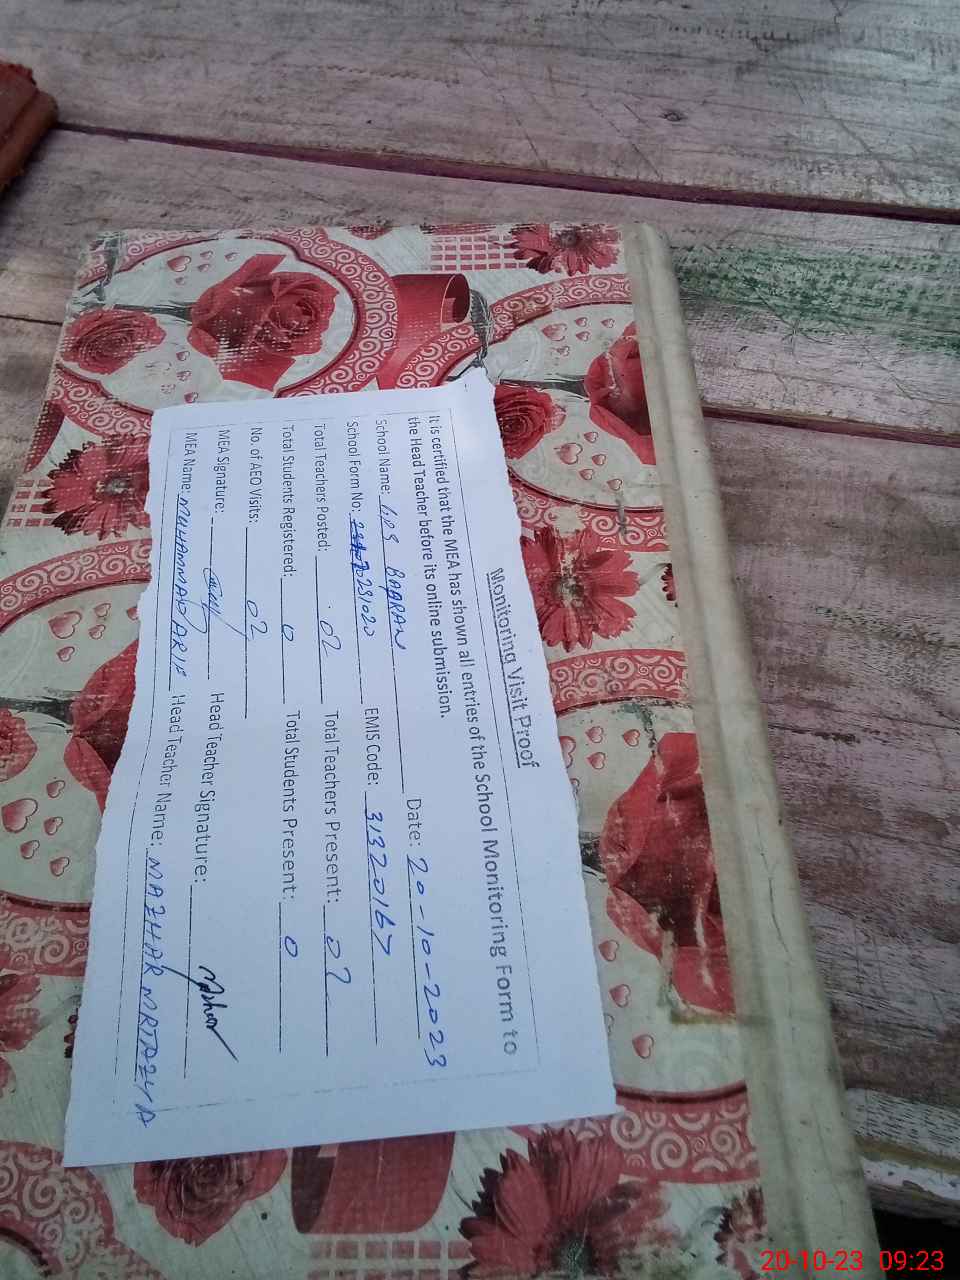 Monitoring Visit Proof
It is certified that the MEA has shown all entries of the School Monitoring Form to
the Head Teacher before its online submission.
School Name: GPS BAARAN Date: 20-10-2023
School Form No: 231020 EMIS Code: 31320167
Total Teachers Posted: 02 Total Teachers Present: 02
Total Students Registered: 0 Total Students Present: 0
No. of AEO Visits: 02
MEA Signature: Head Teacher Signature: Mazhar
MEA Name: MUHAMMAD ARIF Head Teacher Name: MAZHAR
20-10-23 09:23